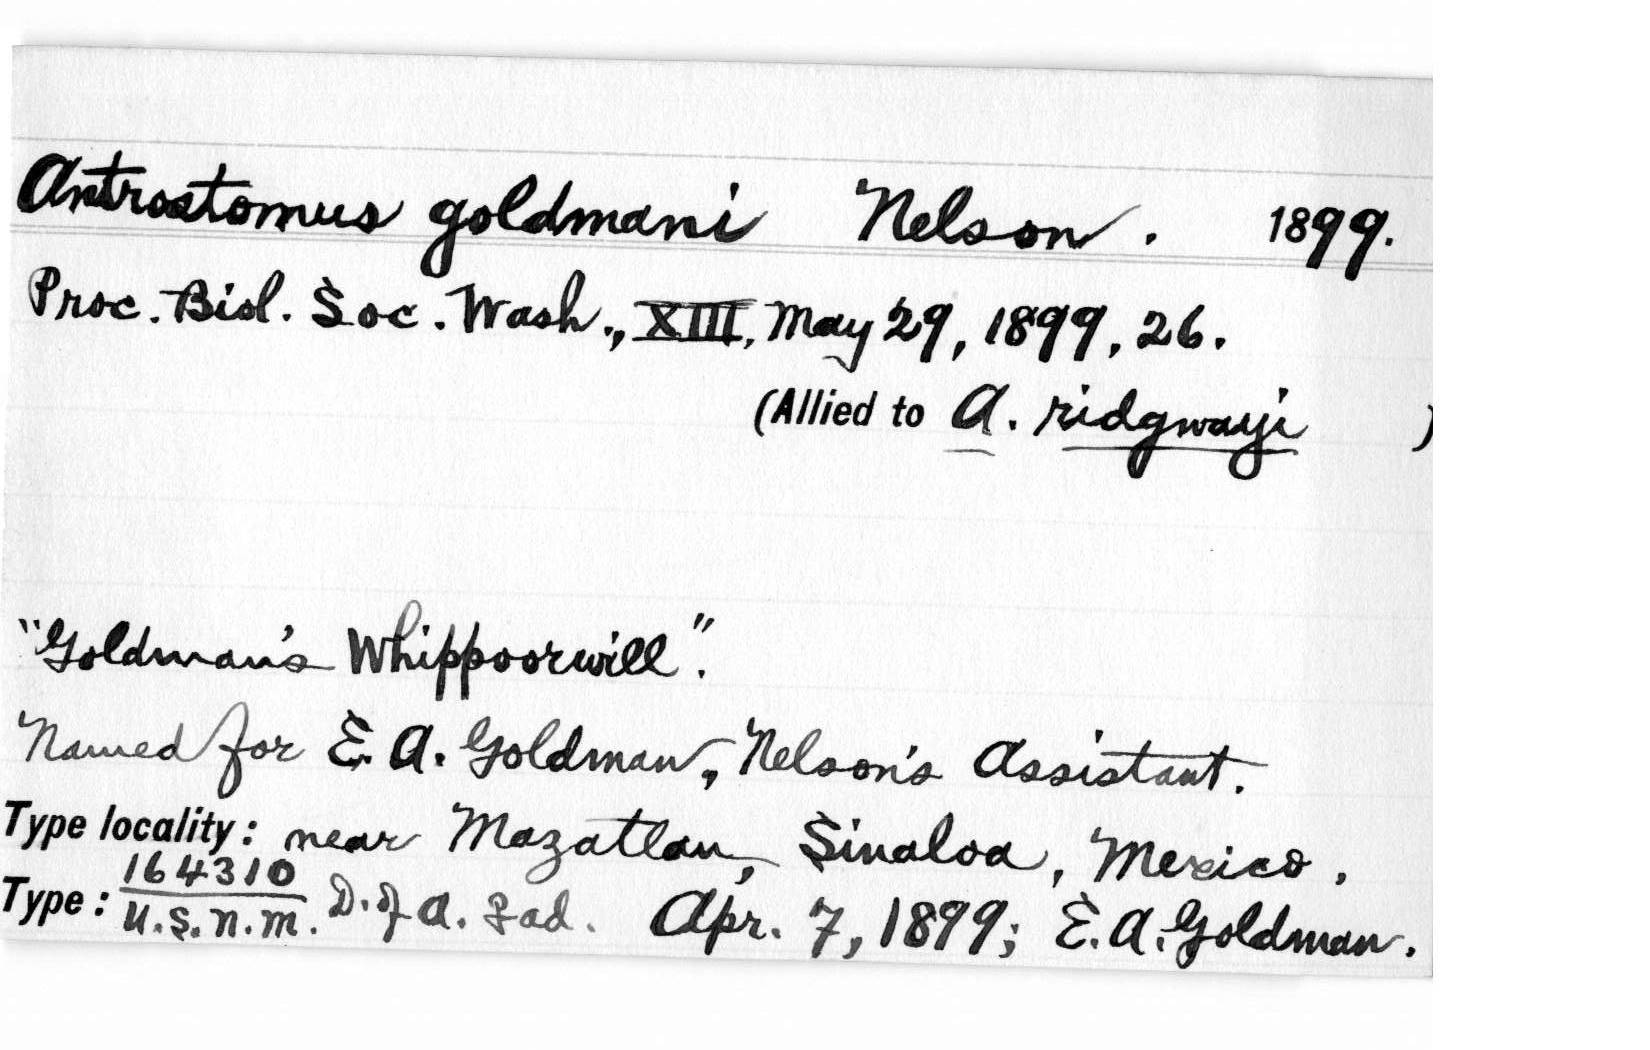 Antrostomus goldmani Nelson. 1899.
Proc. Biol. Soc. Wash., XIII, May 29, 1899, 26.
(Allied to A. ridgwayi )
"Goldman's Whippoorwill".
Named for E. A. Goldman, Nelson's Assistant.
Type locality: near Mazatlan, Sinaloa, Mexico.
164310
Type: U.S.N.M. D. of A. ad. Apr. 7, 1899; E. A. Goldman.